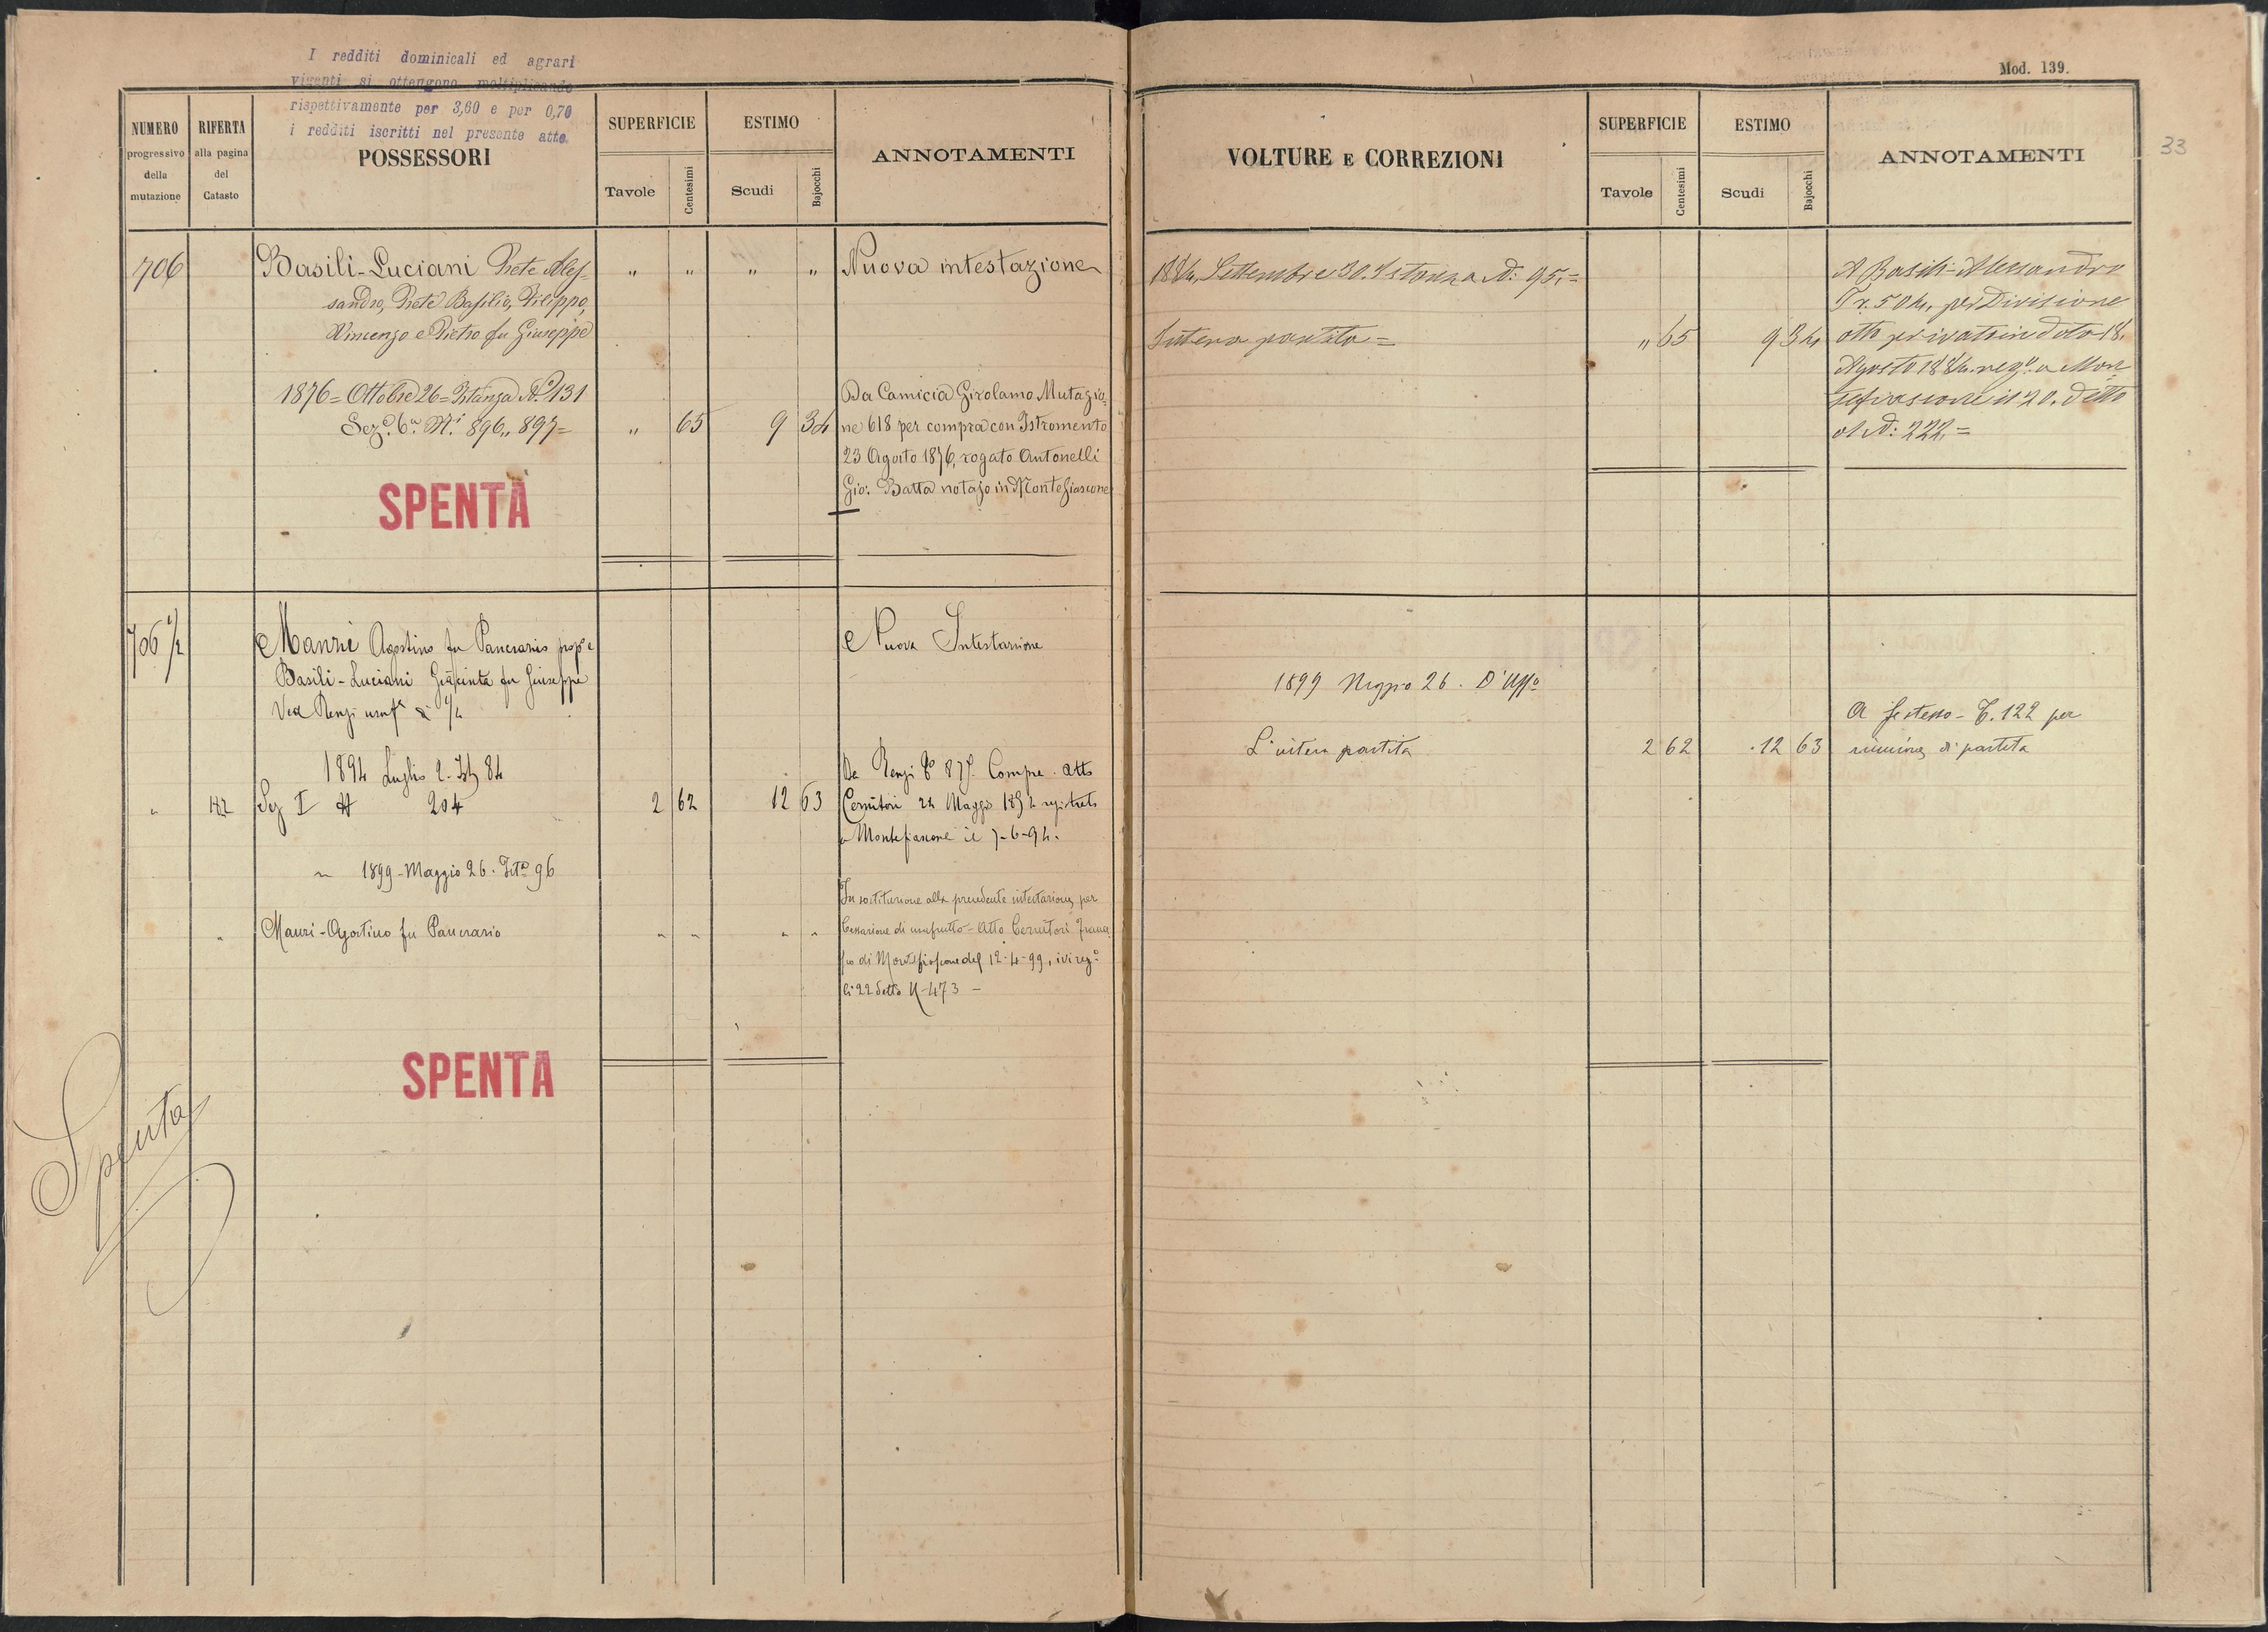 I redditi dominicali ed agrari
vigenti si ottengono moltiplicando
rispettivamente per 3,60 e per 0,70
i redditi iscritti nel presente atto.
NUMERO
progressivo
della
mutazione
RIFERTA
alla pagina
del
Catasto
POSSESSORI
SUPERFICIE
Tavole
Centesimi
ESTIMO
Scudi
Bajocchi
ANNOTAMENTI
706
Basili-Luciani Prete Ales-
sandro, Prete Basilio, Filippo,
Vincenzo e Pietro fu Giuseppe
" " " "
Nuova intestazione
1876 = Ottobre 26 = Istanza N.° 131
Sez.e 6.a N.i 896,, 897 =
" 65 9 34
Da Camicia Girolamo Mutazio=
ne 618 per compra con Istromento
23 Agosto 1876, rogato Antonelli
Gio: Batta notajo in Montefiascone
SPENTA
706 1/2
Manzi Agostino fu Pancrazio prop.e
Basili-Luciani Giacinta fu Giuseppe
Ved Renzi usuf.a di 1/2
Nuova Intestazione
1894 Luglio 2. Ist 84
" 182 Sez I N 204
2 62 12 63
Da Renzi T.o 877. Compra. Atto
Cernitori 24 Maggio 1894 registrato
a Montefiascone il 7-6-94.
" 1899 - Maggio 26. Ist.a 96
" Manzi - Agostino fu Pancrazio
" " " "
In sostituzione alla precedente intestazione, per
Cessazione di usufrutto - Atto Cernitori France
sco di Montefiascone del 12-4-99, ivi reg.o
li 22 detto N-473 -
SPENTA
Spenta
Mod. 139.
33
VOLTURE E CORREZIONI
SUPERFICIE
Tavole
Centesimi
ESTIMO
Scudi
Bajocchi
ANNOTAMENTI
1884, Settembre 30. Istanza N: 95. =
Intera partita =
" 65 9 34
A Basili = Alessandro
Tr. 504, per Divisione
atto privato in data 18.
Agosto 1884. reg.o a Mon
tefiascone il 20. detto
al N: 222. =
1899 Maggio 26. D'Uff.o
L'intera partita
2 62 12 63
A se stesso - T. 122 per
riunione di partita